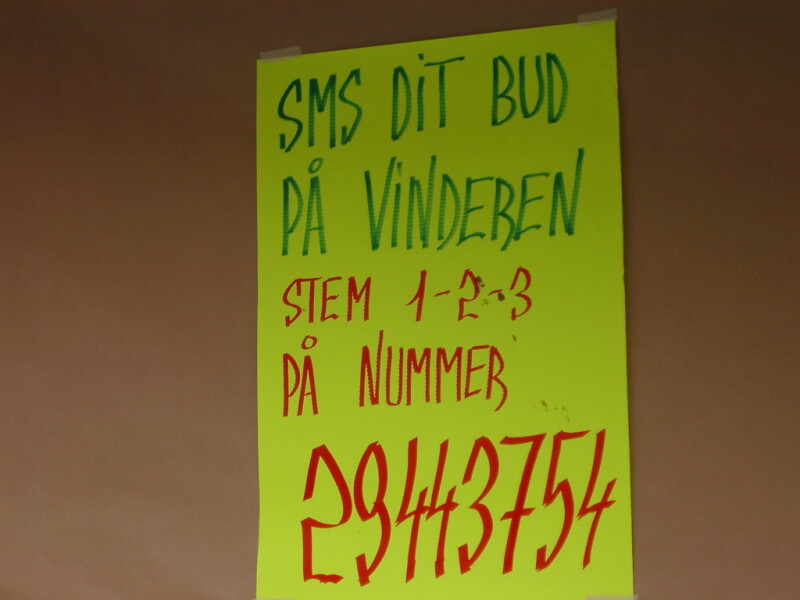 SMS DiT BUD
PÅ ViNDEREN
STEM 1-2-3
PÅ NUMMER
29443754